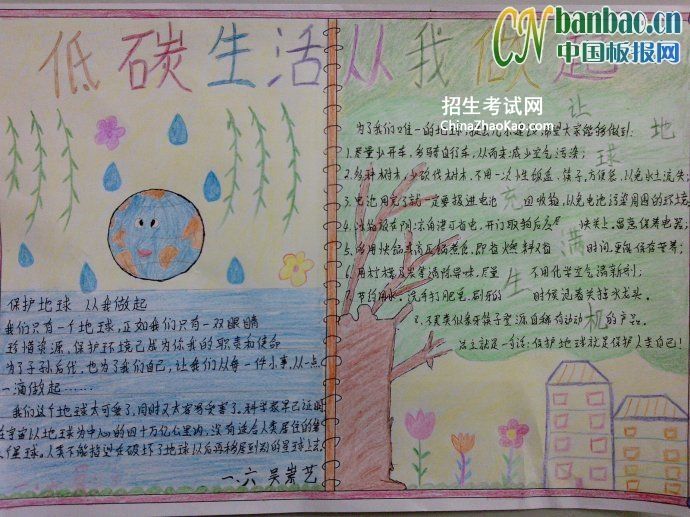 CN banbao.cn
中国板报网
低碳生活从我做起
招生考试网
ChinaZhaoKao.com
让地球充满生机
为了我们唯一的地球,希望大家能够做到:
1.尽量少开车,多骑自行车,从而来减少空气污染;
2.多种树木,少砍伐树木,不用一次性饭盒、筷子、方便袋,以免水土流失;
3.电池用完了就一定要投进电池回收箱,以免电池污染周围的环境
4.冰箱放在阴凉角落可省电,开门取物后 快关上,显意保养电器;
5.多用快锅或高压锅煮食,即省燃料又省时间,更能保存营养;
6.用 除异味,尽量不用化学空气清新剂;
7.节约用水。洗手打肥皂、刷牙的时候记着关掉水龙头。
8.不买类似象牙筷子来源自稀有动动的产品。
总之就是一句话:保护地球就是保护人类自己!
保护地球 从我做起
我们只有一个地球,正如我们只有一双眼睛
珍惜资源,保护环境已成为你我的职责和使命
为了子孙后代,也为了我们自己,让我们从每一件小事,从一点
一滴做起……
我们这个地球太可爱了,同时又太容易受害了。科学家早已证明
在宇宙以地球为中心的四十万亿公里内,没有适合人类居住的第
二个星球。人类不能指望在破坏了地球以后再移居到别的星球上去。
一、六 吴崇艺